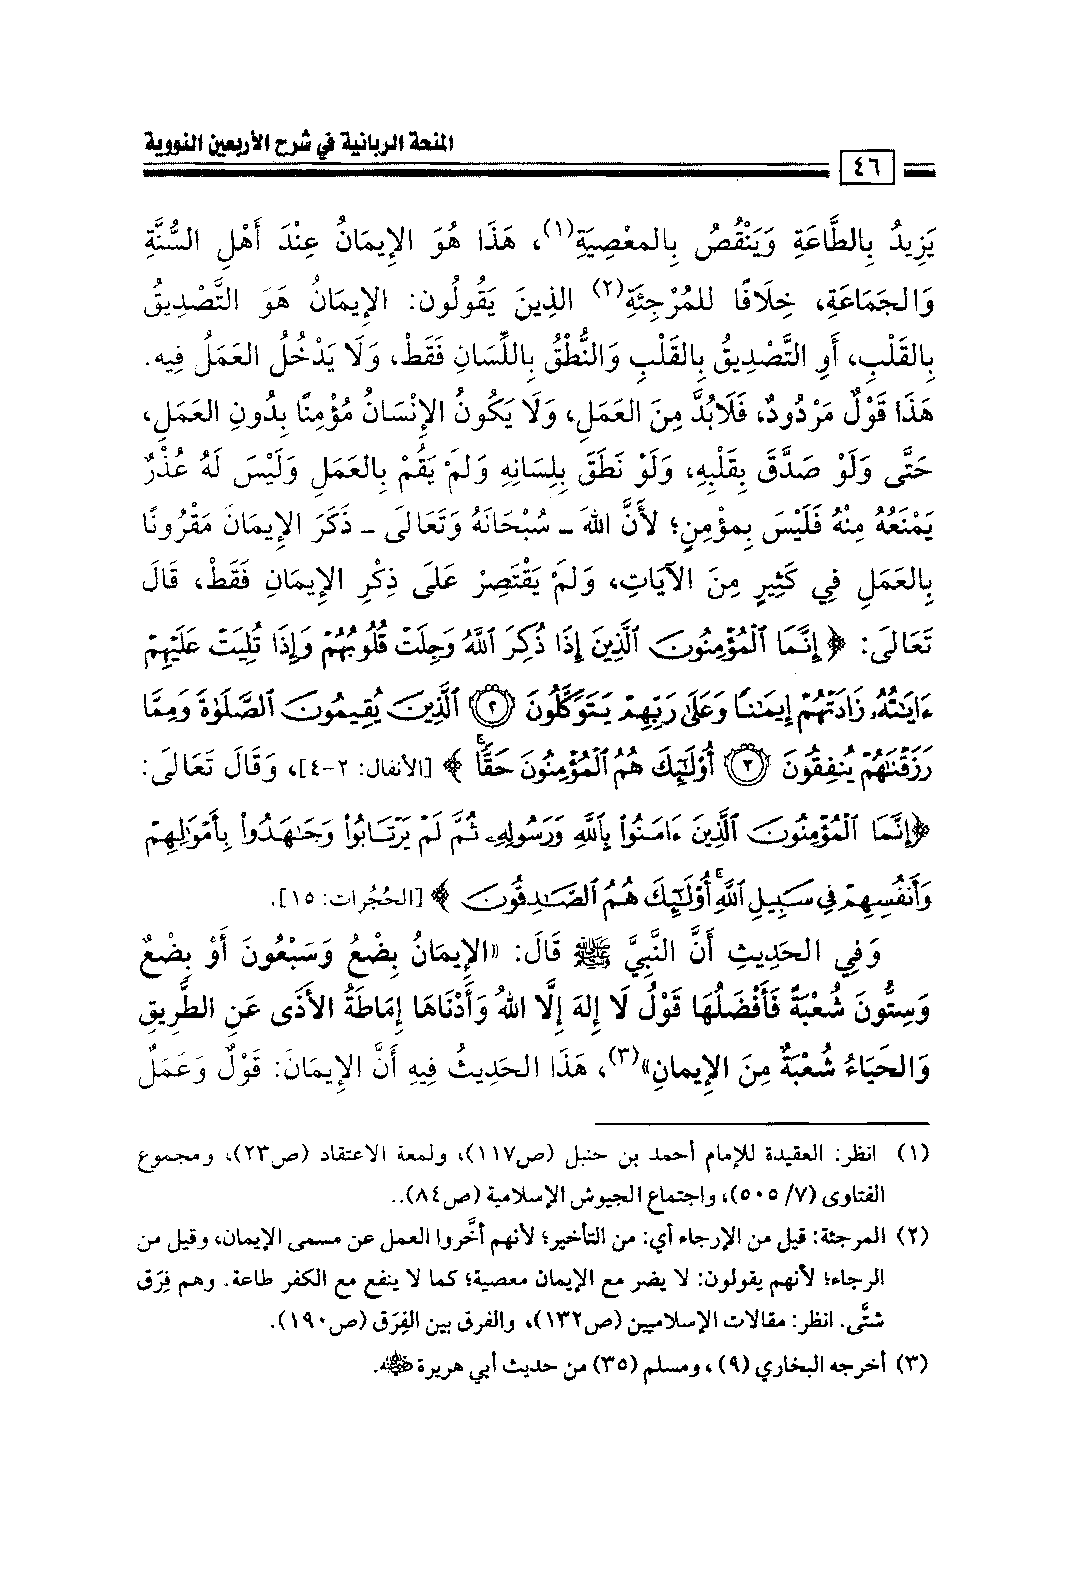 المنحة الربانية في شرح الأربعين النووية
٤٦
يَزِيدُ بِالطَّاعَةِ وَيَنْقُصُ بِالمعْصِيَةِ(١)، هَذَا هُوَ الإِيمَانُ عِنْدَ أَهْلِ السُّنَّةِ
وَالجَمَاعَةِ، خِلَافًا للمُرْجِئَةِ(٢) الذِينَ يَقُولُون: الإِيمَانُ هَوَ التَّصْدِيقُ
بِالقَلْبِ، أَوِ التَّصْدِيقُ بِالقَلْبِ وَالنُّطْقُ بِاللِّسَانِ فَقَطْ، وَلَا يَدْخُلُ العَمَلُ فِيه.
هَذَا قَوْلٌ مَرْدُودٌ، فَلَابُدَّ مِنَ العَمَلِ، وَلَا يَكُونُ الإِنْسَانُ مُؤْمِنًا بِدُونِ العَمَلِ،
حَتَّى وَلَوْ صَدَّقَ بِقَلْبِهِ، وَلَوْ نَطَقَ بِلِسَانِهِ وَلَمْ يَقُمْ بِالعَمَلِ وَلَيْسَ لَهُ عُذْرٌ
يَمْنَعُهُ مِنْهُ فَلَيْسَ بِمؤْمِنٍ؛ لأَنَّ اللهَ ـ سُبْحَانَهُ وَتَعَالَى ـ ذَكَرَ الإِيمَانَ مَقْرُونًا
بِالعَمَلِ فِي كَثِيرٍ مِنَ الآيَاتِ، وَلَمْ يَقْتَصِرْ عَلَى ذِكْرِ الإِيمَانِ فَقَطْ، قَالَ
تَعَالَى: ﴿ إِنَّمَا ٱلْمُؤْمِنُونَ ٱلَّذِينَ إِذَا ذُكِرَ ٱللَّهُ وَجِلَتْ قُلُوبُهُمْ وَإِذَا تُلِيَتْ عَلَيْهِمْ
ءَايَٰتُهُۥ زَادَتْهُمْ إِيمَٰنًا وَعَلَىٰ رَبِّهِمْ يَتَوَكَّلُونَ ۝٢ ٱلَّذِينَ يُقِيمُونَ ٱلصَّلَوٰةَ وَمِمَّا
رَزَقْنَٰهُمْ يُنفِقُونَ ۝٣ أُوْلَٰٓئِكَ هُمُ ٱلْمُؤْمِنُونَ حَقًّاۚ ﴾ [الأنفال: ٢-٤]، وَقَالَ تَعَالَى:
﴿إِنَّمَا ٱلْمُؤْمِنُونَ ٱلَّذِينَ ءَامَنُواْ بِٱللَّهِ وَرَسُولِهِۦ ثُمَّ لَمْ يَرْتَابُواْ وَجَٰهَدُواْ بِأَمْوَٰلِهِمْ
وَأَنفُسِهِمْ فِي سَبِيلِ ٱللَّهِۚ أُوْلَٰٓئِكَ هُمُ ٱلصَّٰدِقُونَ ﴾ [الحُجُرات: ١٥].
وَفِي الحَدِيثِ أَنَّ النَّبِيَّ ﷺ قَالَ: «الإِيمَانُ بِضْعٌ وَسَبْعُونَ أَوْ بِضْعٌ
وَسِتُّونَ شُعْبَةً فَأَفْضَلُهَا قَوْلُ لَا إِلهَ إِلَّا اللهُ وَأَدْنَاهَا إِمَاطَةُ الأَذَى عَنِ الطَّرِيقِ
وَالحَيَاءُ شُعْبَةٌ مِنَ الإِيمانِ»(٣)، هَذَا الحَدِيثُ فِيهِ أَنَّ الإِيمَانَ: قَوْلٌ وَعَمَلٌ
(١) انظر: العقيدة للإمام أحمد بن حنبل (ص١١٧)، ولمعة الاعتقاد (ص٢٣)، ومجموع
الفتاوى (٧/ ٥٠٥)، واجتماع الجيوش الإسلامية (ص٨٤)..
(٢) المرجئة: قيل من الإرجاء أي: من التأخير؛ لأنهم أخَّروا العمل عن مسمى الإيمان، وقيل من
الرجاء؛ لأنهم يقولون: لا يضر مع الإيمان معصية؛ كما لا ينفع مع الكفر طاعة. وهم فِرَق
شتَّى. انظر: مقالات الإسلاميين (ص١٣٢)، والفرق بين الفِرَق (ص١٩٠).
(٣) أخرجه البخاري (٩) ، ومسلم (٣٥) من حديث أبي هريرة رضي الله عنه.